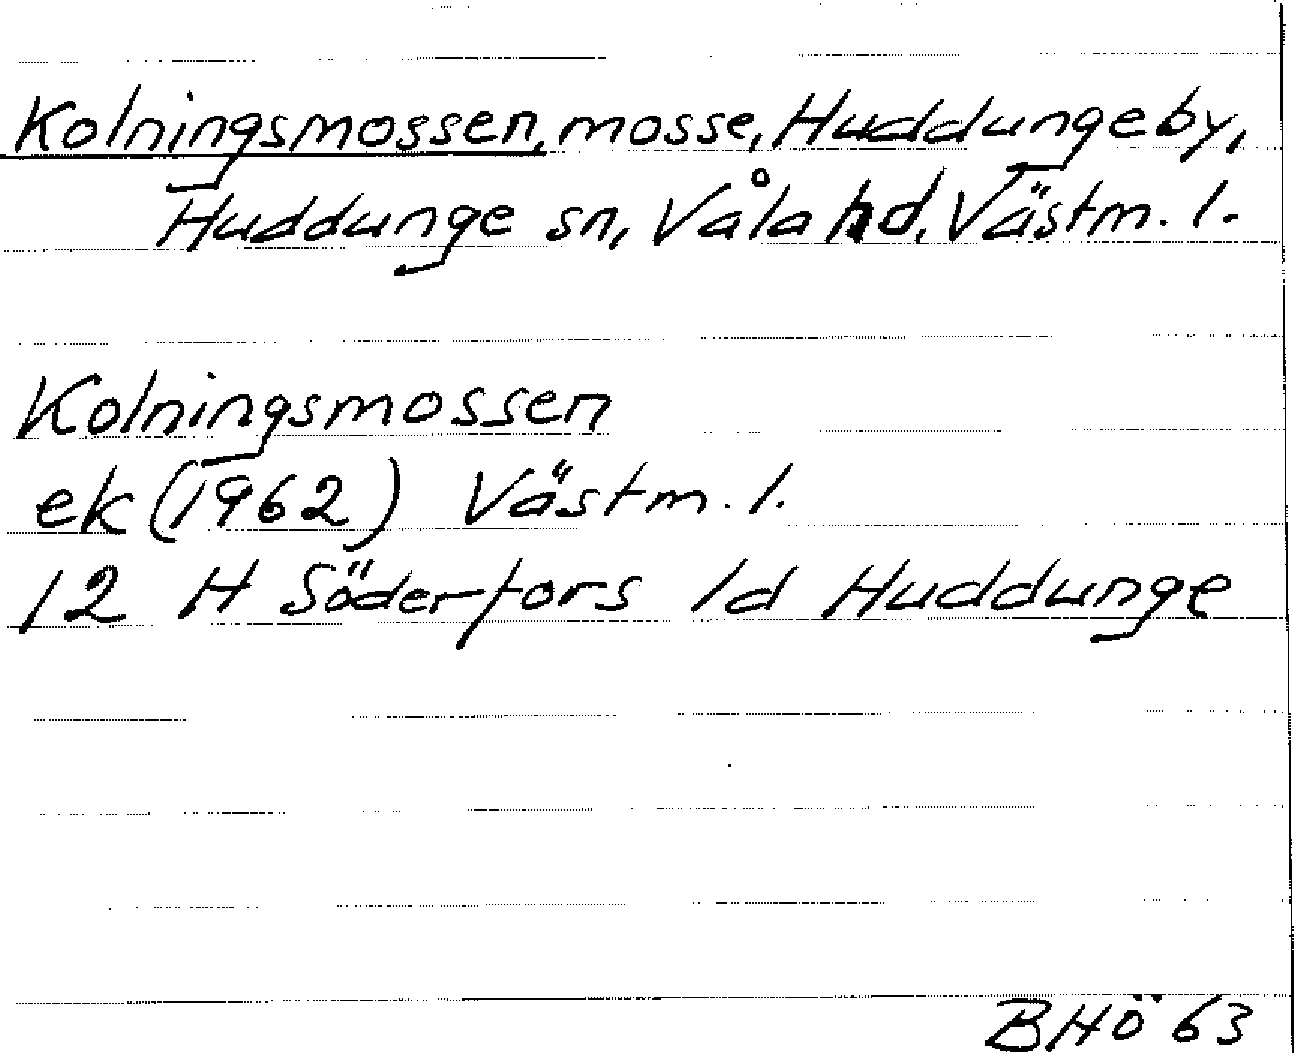 Kolningsmossen, mosse, Huddungeby,
Huddunge sn, Våla hd, Västm. l.
Kolningsmossen
ek (1962) Västm. l.
12 H Söderfors 1d Huddunge
BHÖ 63